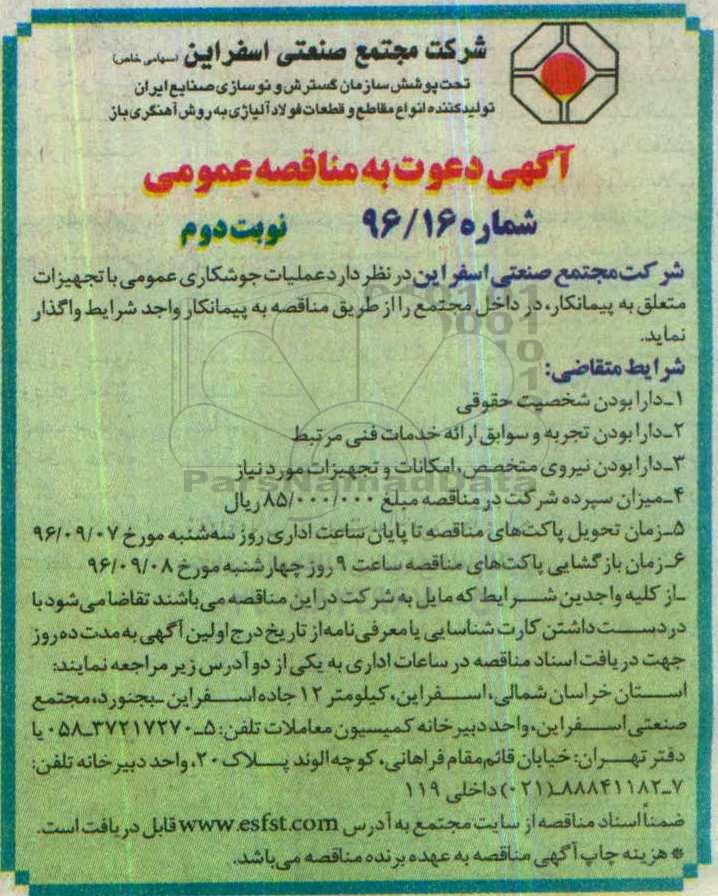 شرکت مجتمع صنعتی اسفراین (سهامی خاص)
تحت پوشش سازمان گسترش و نوسازی صنایع ایران
تولیدکننده انواع مقاطع و قطعات فولاد آلیاژی به روش آهنگری باز
آگهی دعوت به مناقصه عمومی
شماره ۹۶/۱۶ نوبت دوم
شرکت مجتمع صنعتی اسفراین در نظر دارد عملیات جوشکاری عمومی با تجهیزات
متعلق به پیمانکار، در داخل مجتمع را از طریق مناقصه به پیمانکار واجد شرایط واگذار
نماید.
شرایط متقاضی:
۱ـ دارا بودن شخصیت حقوقی
۲ـ دارا بودن تجربه و سوابق ارائه خدمات فنی مرتبط
۳ـ دارا بودن نیروی متخصص، امکانات و تجهیزات مورد نیاز
ParsNamadData
۴ـ میزان سپرده شرکت در مناقصه مبلغ ۸۵/۰۰۰/۰۰۰ ریال
۵ـ زمان تحویل پاکت‌های مناقصه تا پایان ساعت اداری روز سه‌شنبه مورخ ۹۶/۰۹/۰۷
۶ـ زمان بازگشایی پاکت‌های مناقصه ساعت ۹ روز چهارشنبه مورخ ۹۶/۰۹/۰۸
ـ از کلیه واجدین شرایط که مایل به شرکت در این مناقصه می‌باشند تقاضا می‌شود با
در دست داشتن کارت شناسایی یا معرفی‌نامه از تاریخ درج اولین آگهی به مدت ده روز
جهت دریافت اسناد مناقصه در ساعات اداری به یکی از دو آدرس زیر مراجعه نمایند:
استان خراسان شمالی، اسفراین، کیلومتر ۱۲ جاده اسفراین ـ بجنورد، مجتمع
صنعتی اسفراین، واحد دبیرخانه کمیسیون معاملات تلفن: ۵ـ۳۷۲۱۷۲۷۰ـ۰۵۸ یا
دفتر تهران: خیابان قائم‌مقام فراهانی، کوچه الوند پلاک ۲۰، واحد دبیرخانه تلفن:
۷ـ۸۸۸۴۱۱۸۲ـ(۰۲۱) داخلی ۱۱۹
ضمناً اسناد مناقصه از سایت مجتمع به آدرس www.esfst.com قابل دریافت است.
* هزینه چاپ آگهی مناقصه به عهده برنده مناقصه می‌باشد.